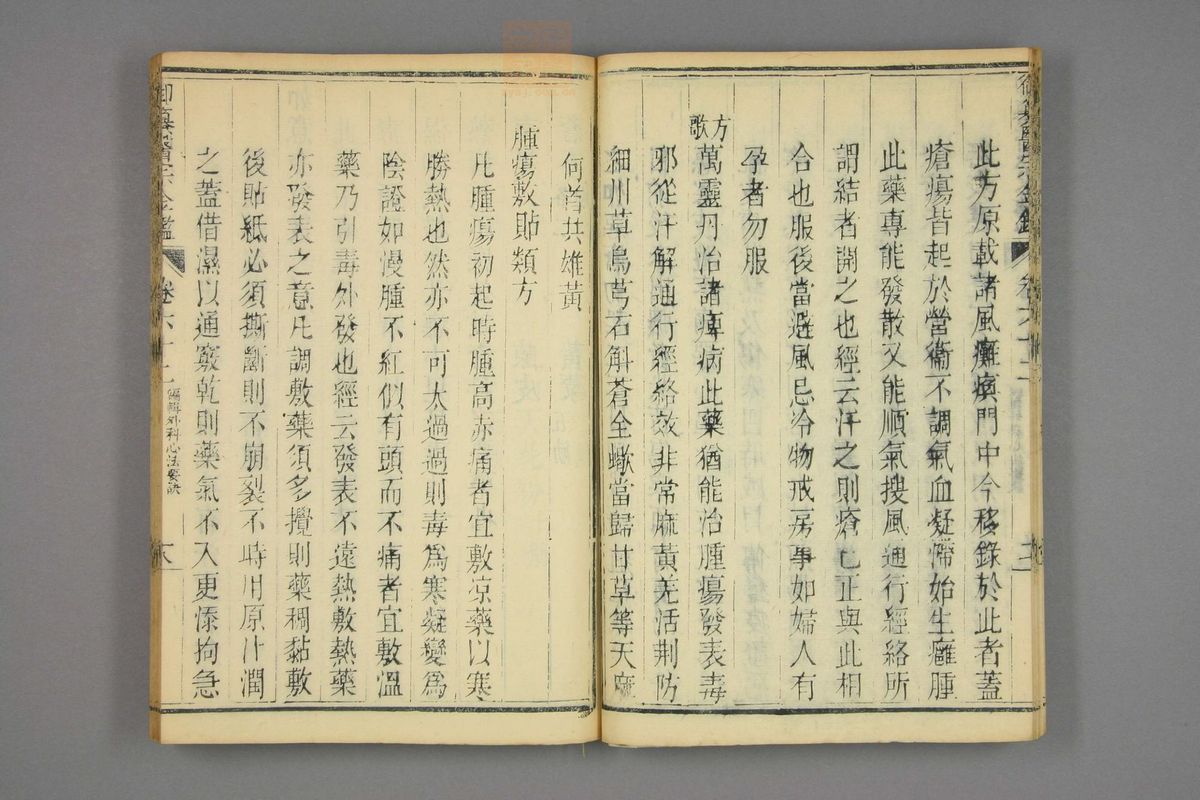 御纂醫宗金鑑
此方原載諸風癱瘓門中今移錄於此者蓋
瘡瘍皆起於營衛不調氣血凝滯始生癰腫
此藥專能發散又能順氣搜風通行經絡所
謂結者開之也經云汗之則瘡已正與此相
合也服後當避風忌冷物戒房事如婦人有
孕者勿服
方歌
萬靈丹治諸痺病此藥猶能治腫瘍發表毒
邪從汗解通行經絡效非常麻黃羌活荆防
細川草烏芎石斛蒼全蠍當歸甘草等天麻
何首共雄黃
腫瘍敷貼類方
凡腫瘍初起時腫高赤痛者宜敷凉藥以寒
勝熱也然亦不可太過過則毒爲寒凝變爲
陰證如漫腫不紅似有頭而不痛者宜敷溫
藥乃引毒外發也經云發表不遠熱敷熱藥
亦發表之意凡調敷藥須多攪則藥稠黏敷
後貼紙必須撕斷則不崩裂不時用原汁潤
之蓋借濕以通竅乾則藥氣不入更添拘急
御纂醫宗金鑑
卷六十二
編輯外科心法要訣